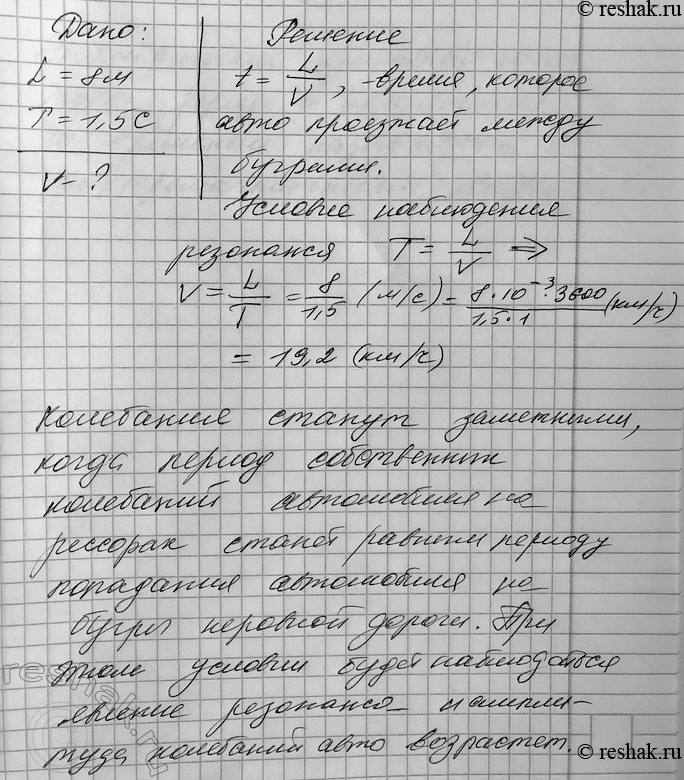 © reshak.ru
Дано:
L = 8м
T = 1,5 с
V - ?
Решение
t = L/V, - время, которое
авто проезжает между
буграми.
Условие наблюдения
резонанса T = L/V ⇒
V = L/T = 8/1,5 (м/с) = 8·10⁻³·3600/1,5·1 (км/ч)
= 19,2 (км/ч)
Колебания станут заметными,
когда период собственных
колебаний автомобиля на
рессорах станет равным периоду
попадания автомобиля на
бугры неровной дороги. При
этом условии будет наблюдаться
явление резонанса и ампли-
туда колебаний авто возрастет.
reshak.ru
© reshak.ru